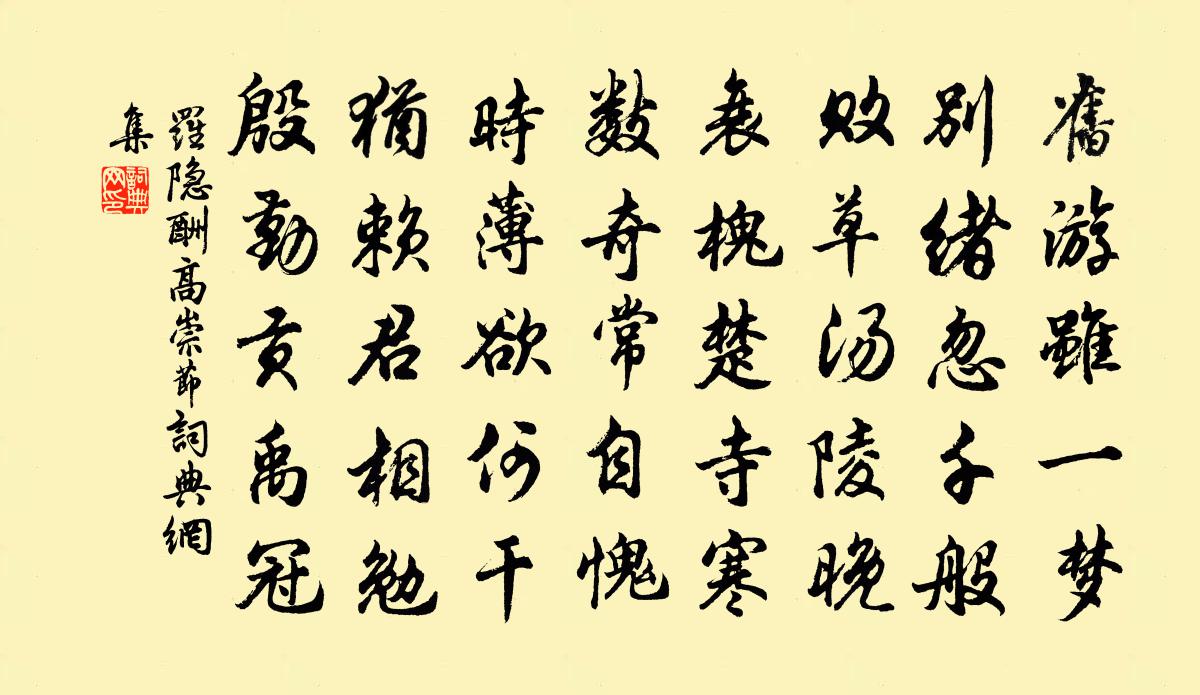 舊游雖一梦
別绪忽千般
败草汤陵晚
衰槐楚寺寒
数奇常自愧
時薄欲何干
猶赖君相勉
殷勤贡禹冠
羅隐酬高崇節詞典網
集
詞典网印